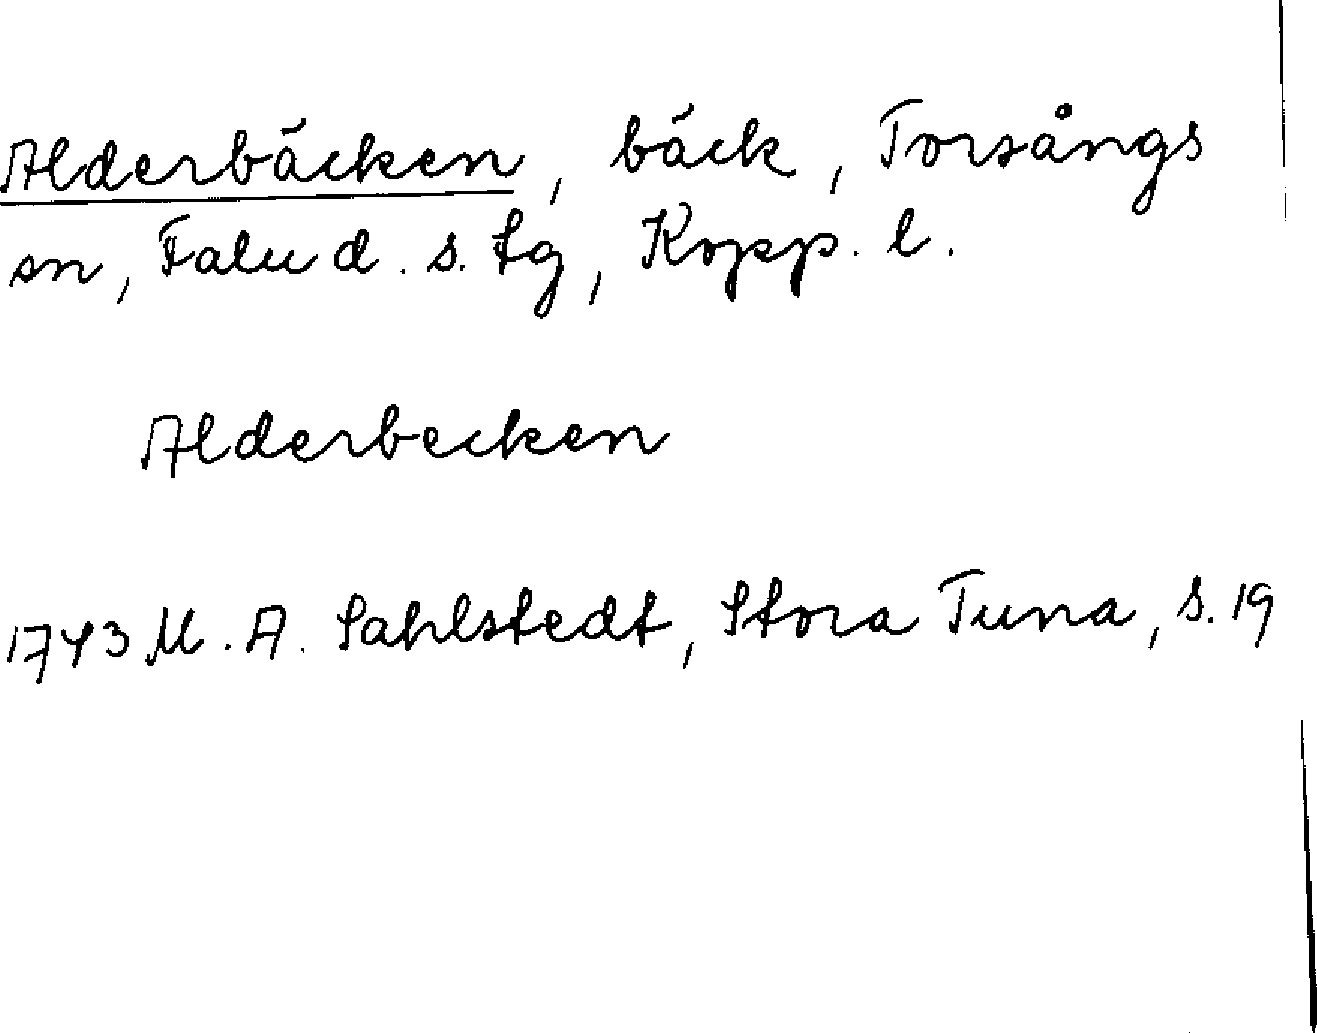 Alderbäcken, bäck, Torsångs
sn, Falu d. s. tg, Kopp. l.
Alderbecken
1743 M. A. Sahlstedt, Stora Tuna, s. 19